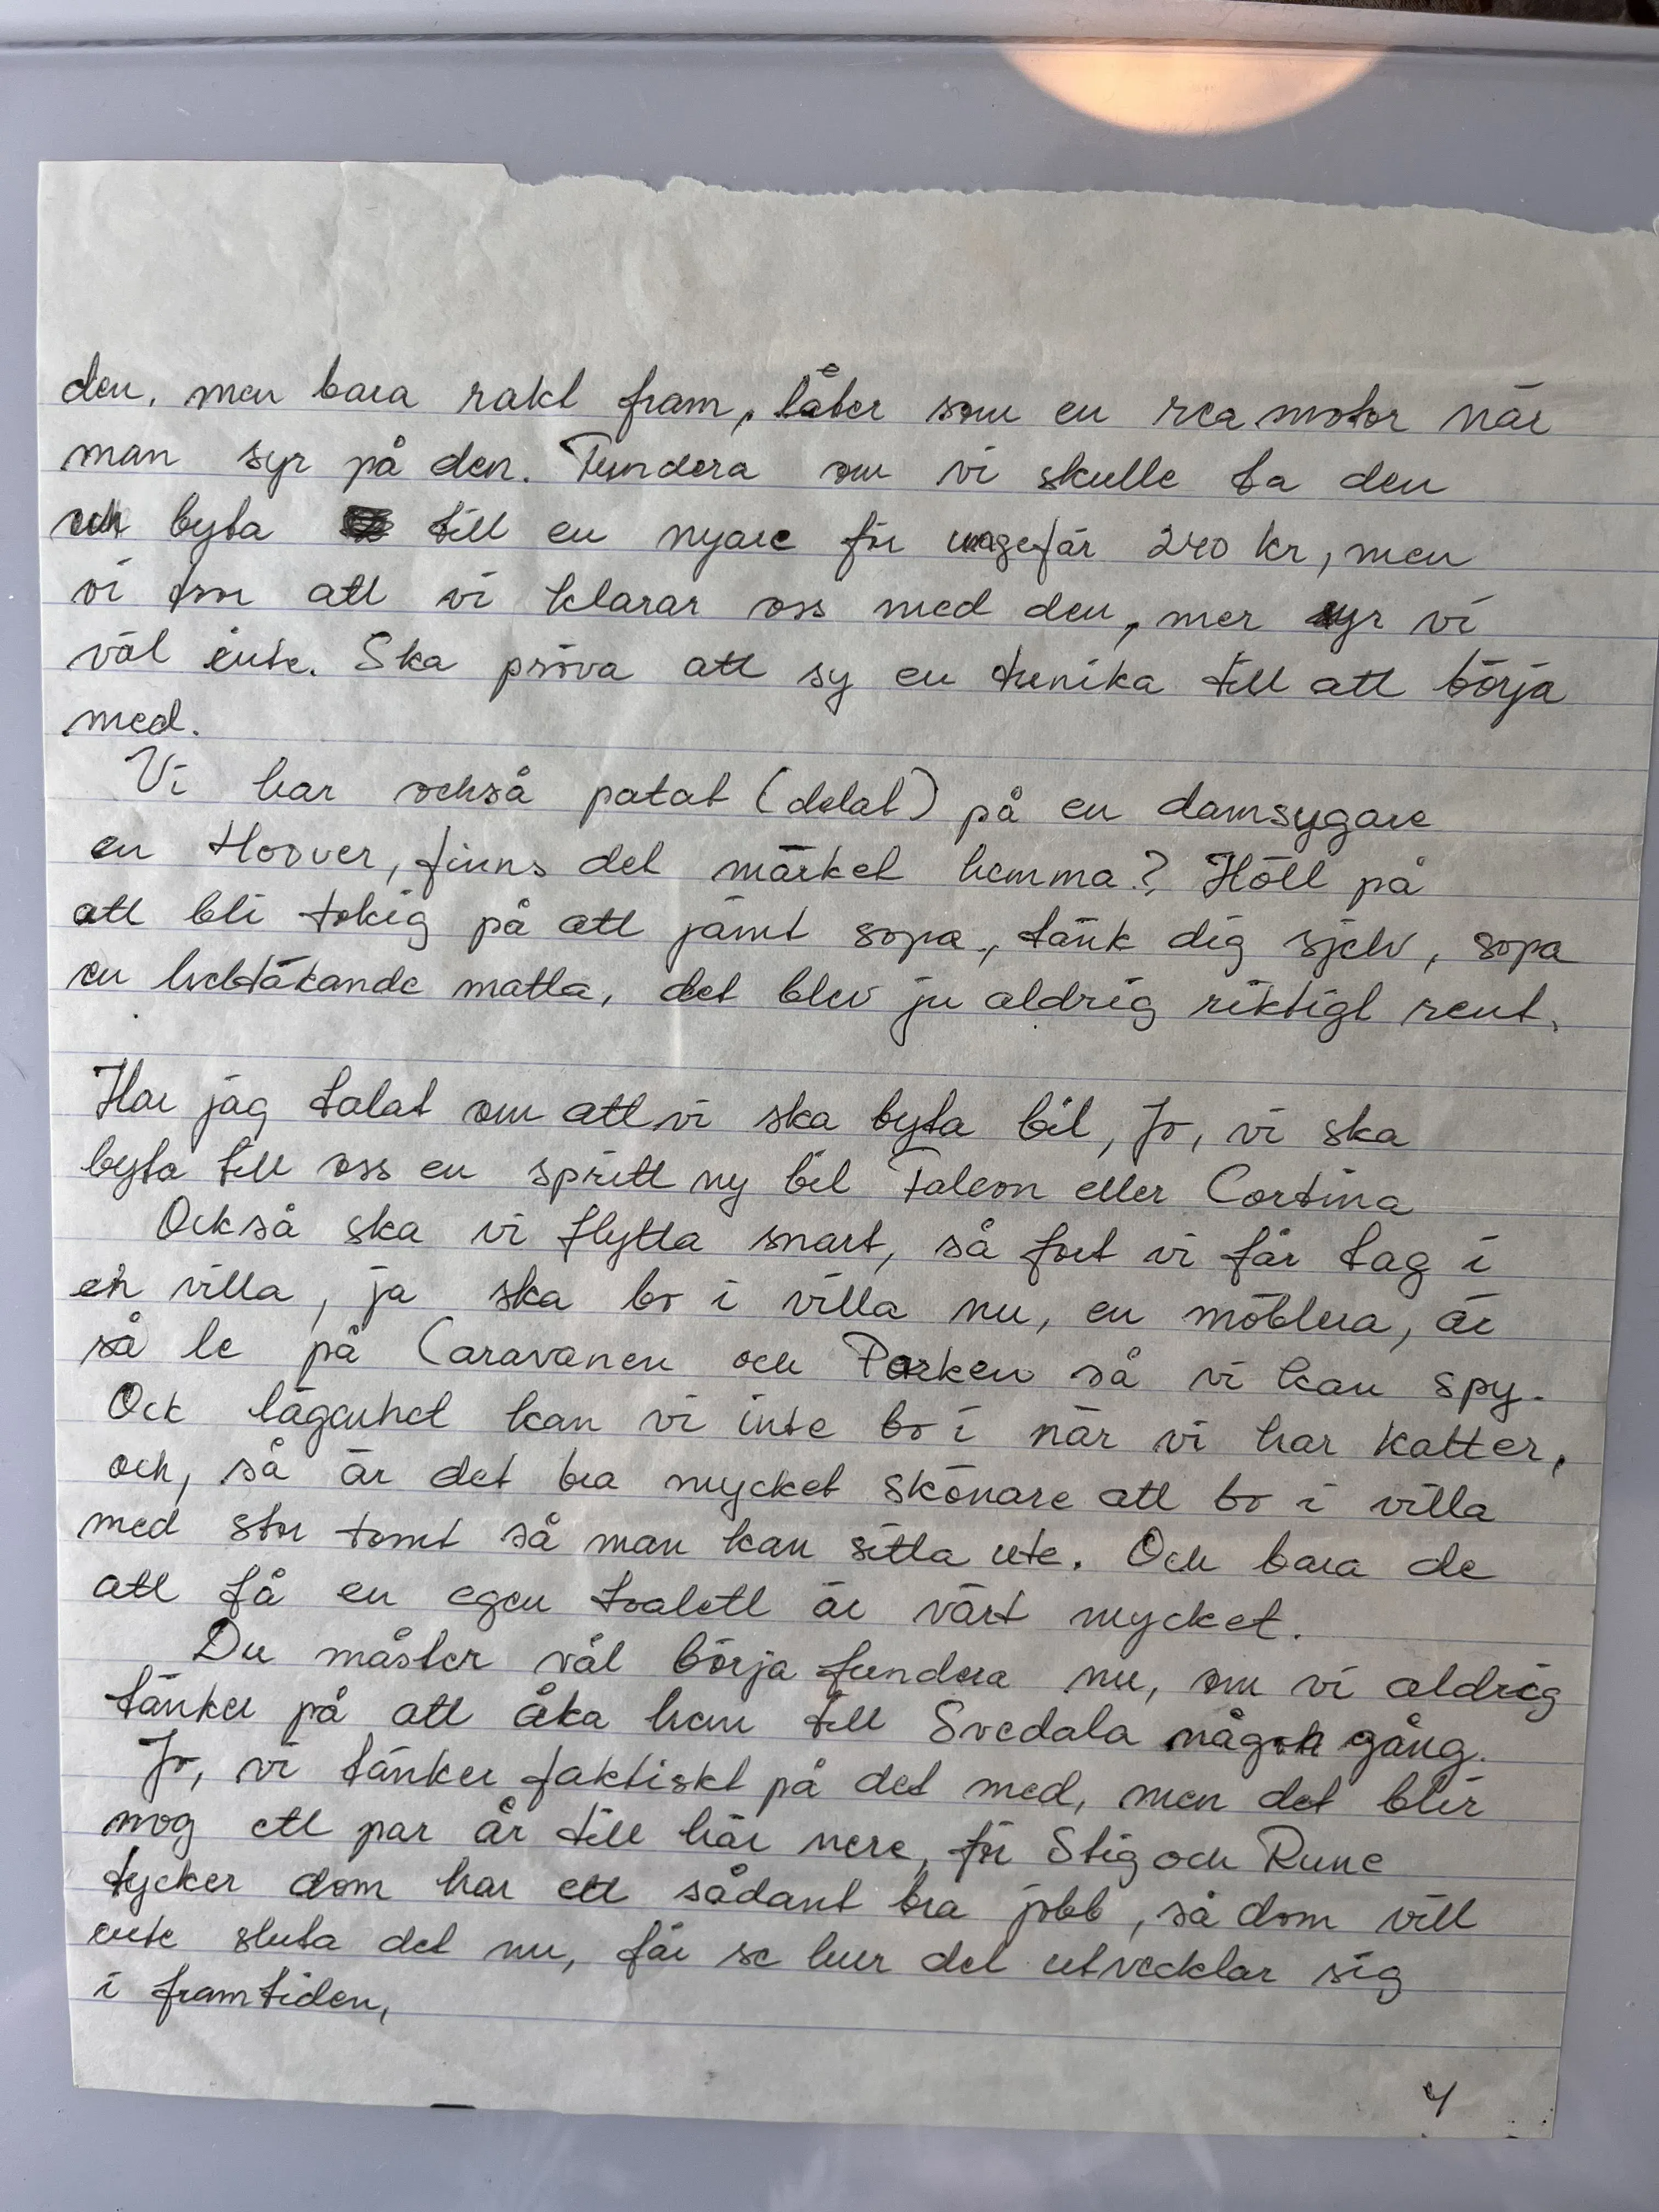 den, men bara rakt fram, låter som en rea motor när
man syr på den. Fundera om vi skulle ta den
och byta till en nyare för ungefär 240 kr, men
vi tror att vi klarar oss med den, mer syr vi
väl inte. Ska pröva att sy en tunika till att börja
med.
Vi har också patat (delat) på en damsygare
en Hoover, finns det märket hemma? Höll på
att bli tokig på att jämt sopa, tänk dig sjelv, sopa
en heltäkande matta, det blev ju aldrig riktigt rent.
Har jag talat om att vi ska byta bil, Jo, vi ska
byta till oss en spritt ny bil Falcon eller Cortina
Också ska vi flytta snart, så fort vi får tag i
en villa, ja ska bo i villa nu, en möblera, är
så le på Caravanen och Parken så vi kan spy.
Ock lägenhet kan vi inte bo i när vi har katter,
och, så är det bra mycket skönare att bo i villa
med stor tomt så man kan sitta ute. Och bara de
att få en egen toalett är värt mycket.
Du måster väl börja fundera nu, om vi aldrig
tänker på att åka hem till Svedala någon gång.
Jo, vi tänker faktiskt på det med, men det blir
nog ett par år till här nere, för Stig och Rune
tycker dom har ett sådant bra jobb, så dom vill
inte sluta det nu, får se hur det utvecklar sig
i framtiden,
4